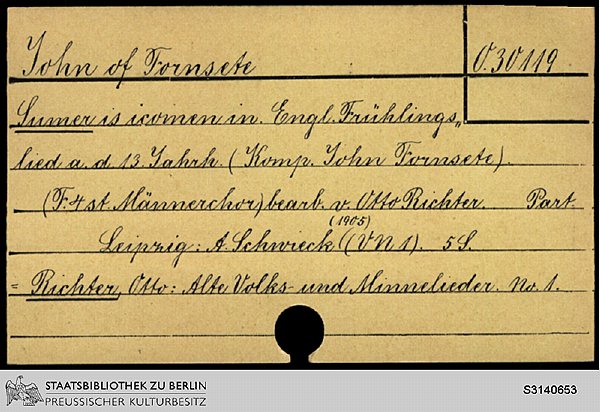 John of Fornsete
O. 30119
Sumer is icomen in. Engl. Frühlings„
lied a. d. 13. Jahrh. (Komp. John Fornsete).
(F. 4 st. Männerchor) bearb. v. Otto Richter. Part
(1905)
Leipzig: A. Schwieck ((VN 1). 5 S.
= Richter, Otto: Alte Volks- und Minnelieder. No. 1.
STAATSBIBLIOTHEK ZU BERLIN
PREUSSISCHER KULTURBESITZ
S3140653